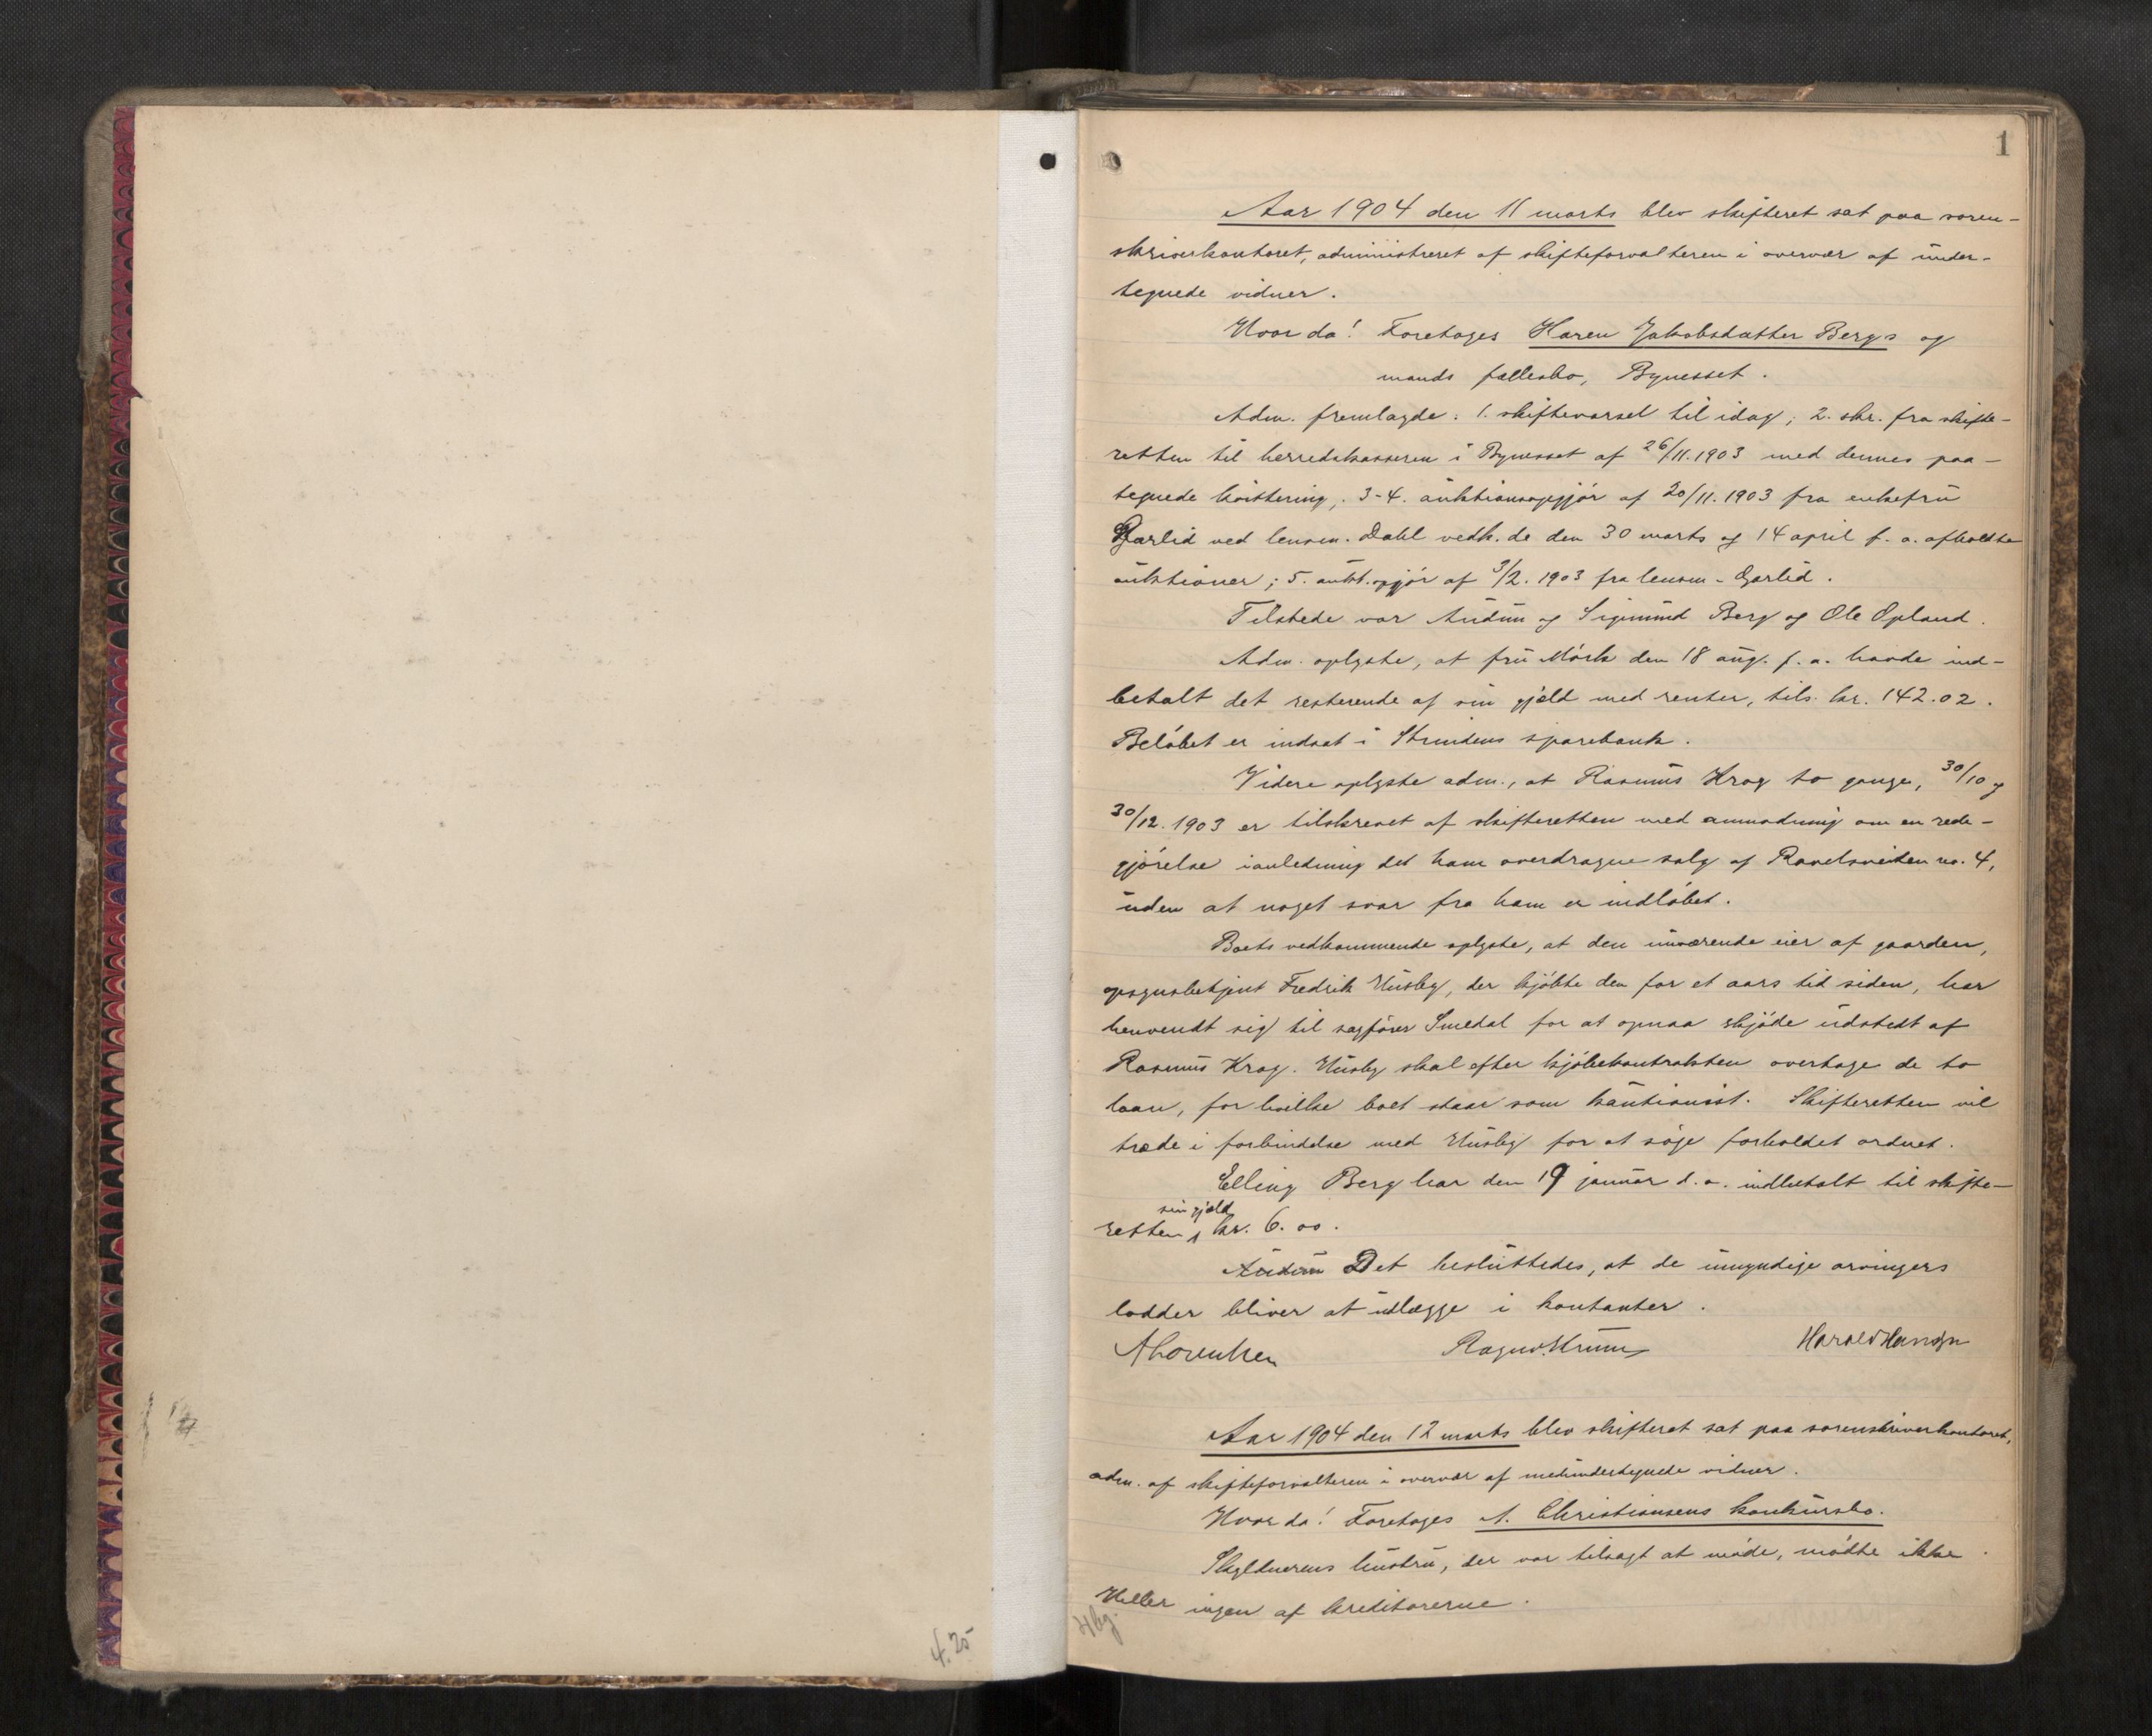 4.25
1
Aar 1904 den 11 marts blev skifteret sat paa soren-
skriverkontoret, administreret af skifteforvalteren i overvær af under-
tegnede vidner.
Hvor da! Foretoges Karen Jakobsdatter Bergs og
mands fællesbo, Bynesset.
Adm. fremlagde: 1. skiftevarsel til idag; 2. skr. fra skifte-
retten til herredskasseren i Bynesset af 26/11.1903 med dennes paa-
tegnede kvittering; 3-4. auktionsopgjør af 20/11.1903 fra enkefru
Gjarlid ved lensm. Dahl vedk. de den 30 marts og 14 april f. a. afholdte
auktioner; 5. aukt.opgjør af 3/2. 1903 fra lensm. Gjarlid.
Tilstede var Audun og Sigmund Berg og Ole Opland.
Adm. oplyste, at fru Mørk den 18 aug. f. a. havde ind-
betalt det resterende af sin gjæld med renter, tils. kr. 142.02.
Beløbet er indsat i Strindens sparebank.
Videre oplyste adm., at Rasmus Krog to gange, 30/10 og
30/12. 1903 er tilskrevet af skifteretten med anmodning om en rede-
gjørelse ianledning det ham overdragne salg af Ravelsveiten no. 4,
uden at noget svar fra ham er indløbet.
Boets vedkommende oplyste, at den nuværende eier af gaarden,
opsynsbetjent Fredrik Husby, der kjøbte den for et aars tid siden, har
henvendt sig til sagfører Smedal for at opnaa skjøde udstedt af
Rasmus Krog. Husby skal efter kjøbekontrakten overtage de to
laan, for hvilke boet staar som kautionist. Skifteretten vil
træde i forbindelse med Husby for at søge forholdet ordnet.
Elling Berg har den 19 januar d. a. indbetalt til skifte-
sin gjæld
retten kr. 6.00.
Audun Det besluttedes, at de umyndige arvingers
lodder bliver at udlægge i kontanter.
A Lorentzen Ragnv. Krum Harald Hansen
Aar 1904 den 12 marts blev skifteret sat paa sorenskriverkontoret,
adm. af skifteforvalteren i overvær af medundertegnede vidner.
Hvor da! Foretoges A. Christiansens konkursbo.
Skyldnerens hustru, der var tilsagt at møde, mødte ikke.
Heller ingen af kreditorerne.